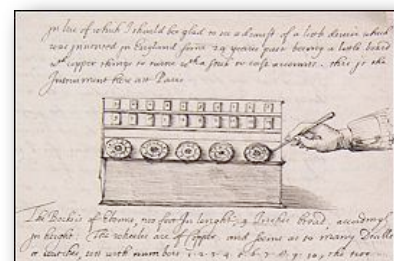 in lue of which I should be glad to see a draust of a litle device which
was invented in England some 29 yeares past beeing a litle board
wth copper strings to turne wth a stick to cast accounts. this is the
Instrument here att Paris
The Box is of Ebonie, two foot In lenght, 9 Inches broad, accordingly
in height. The wheeles are of Copper and seeme as so many Dealls
or watches, sett with numbers 1. 2. 3. 4. 5. 6. 7. 8. 9. 10, the two